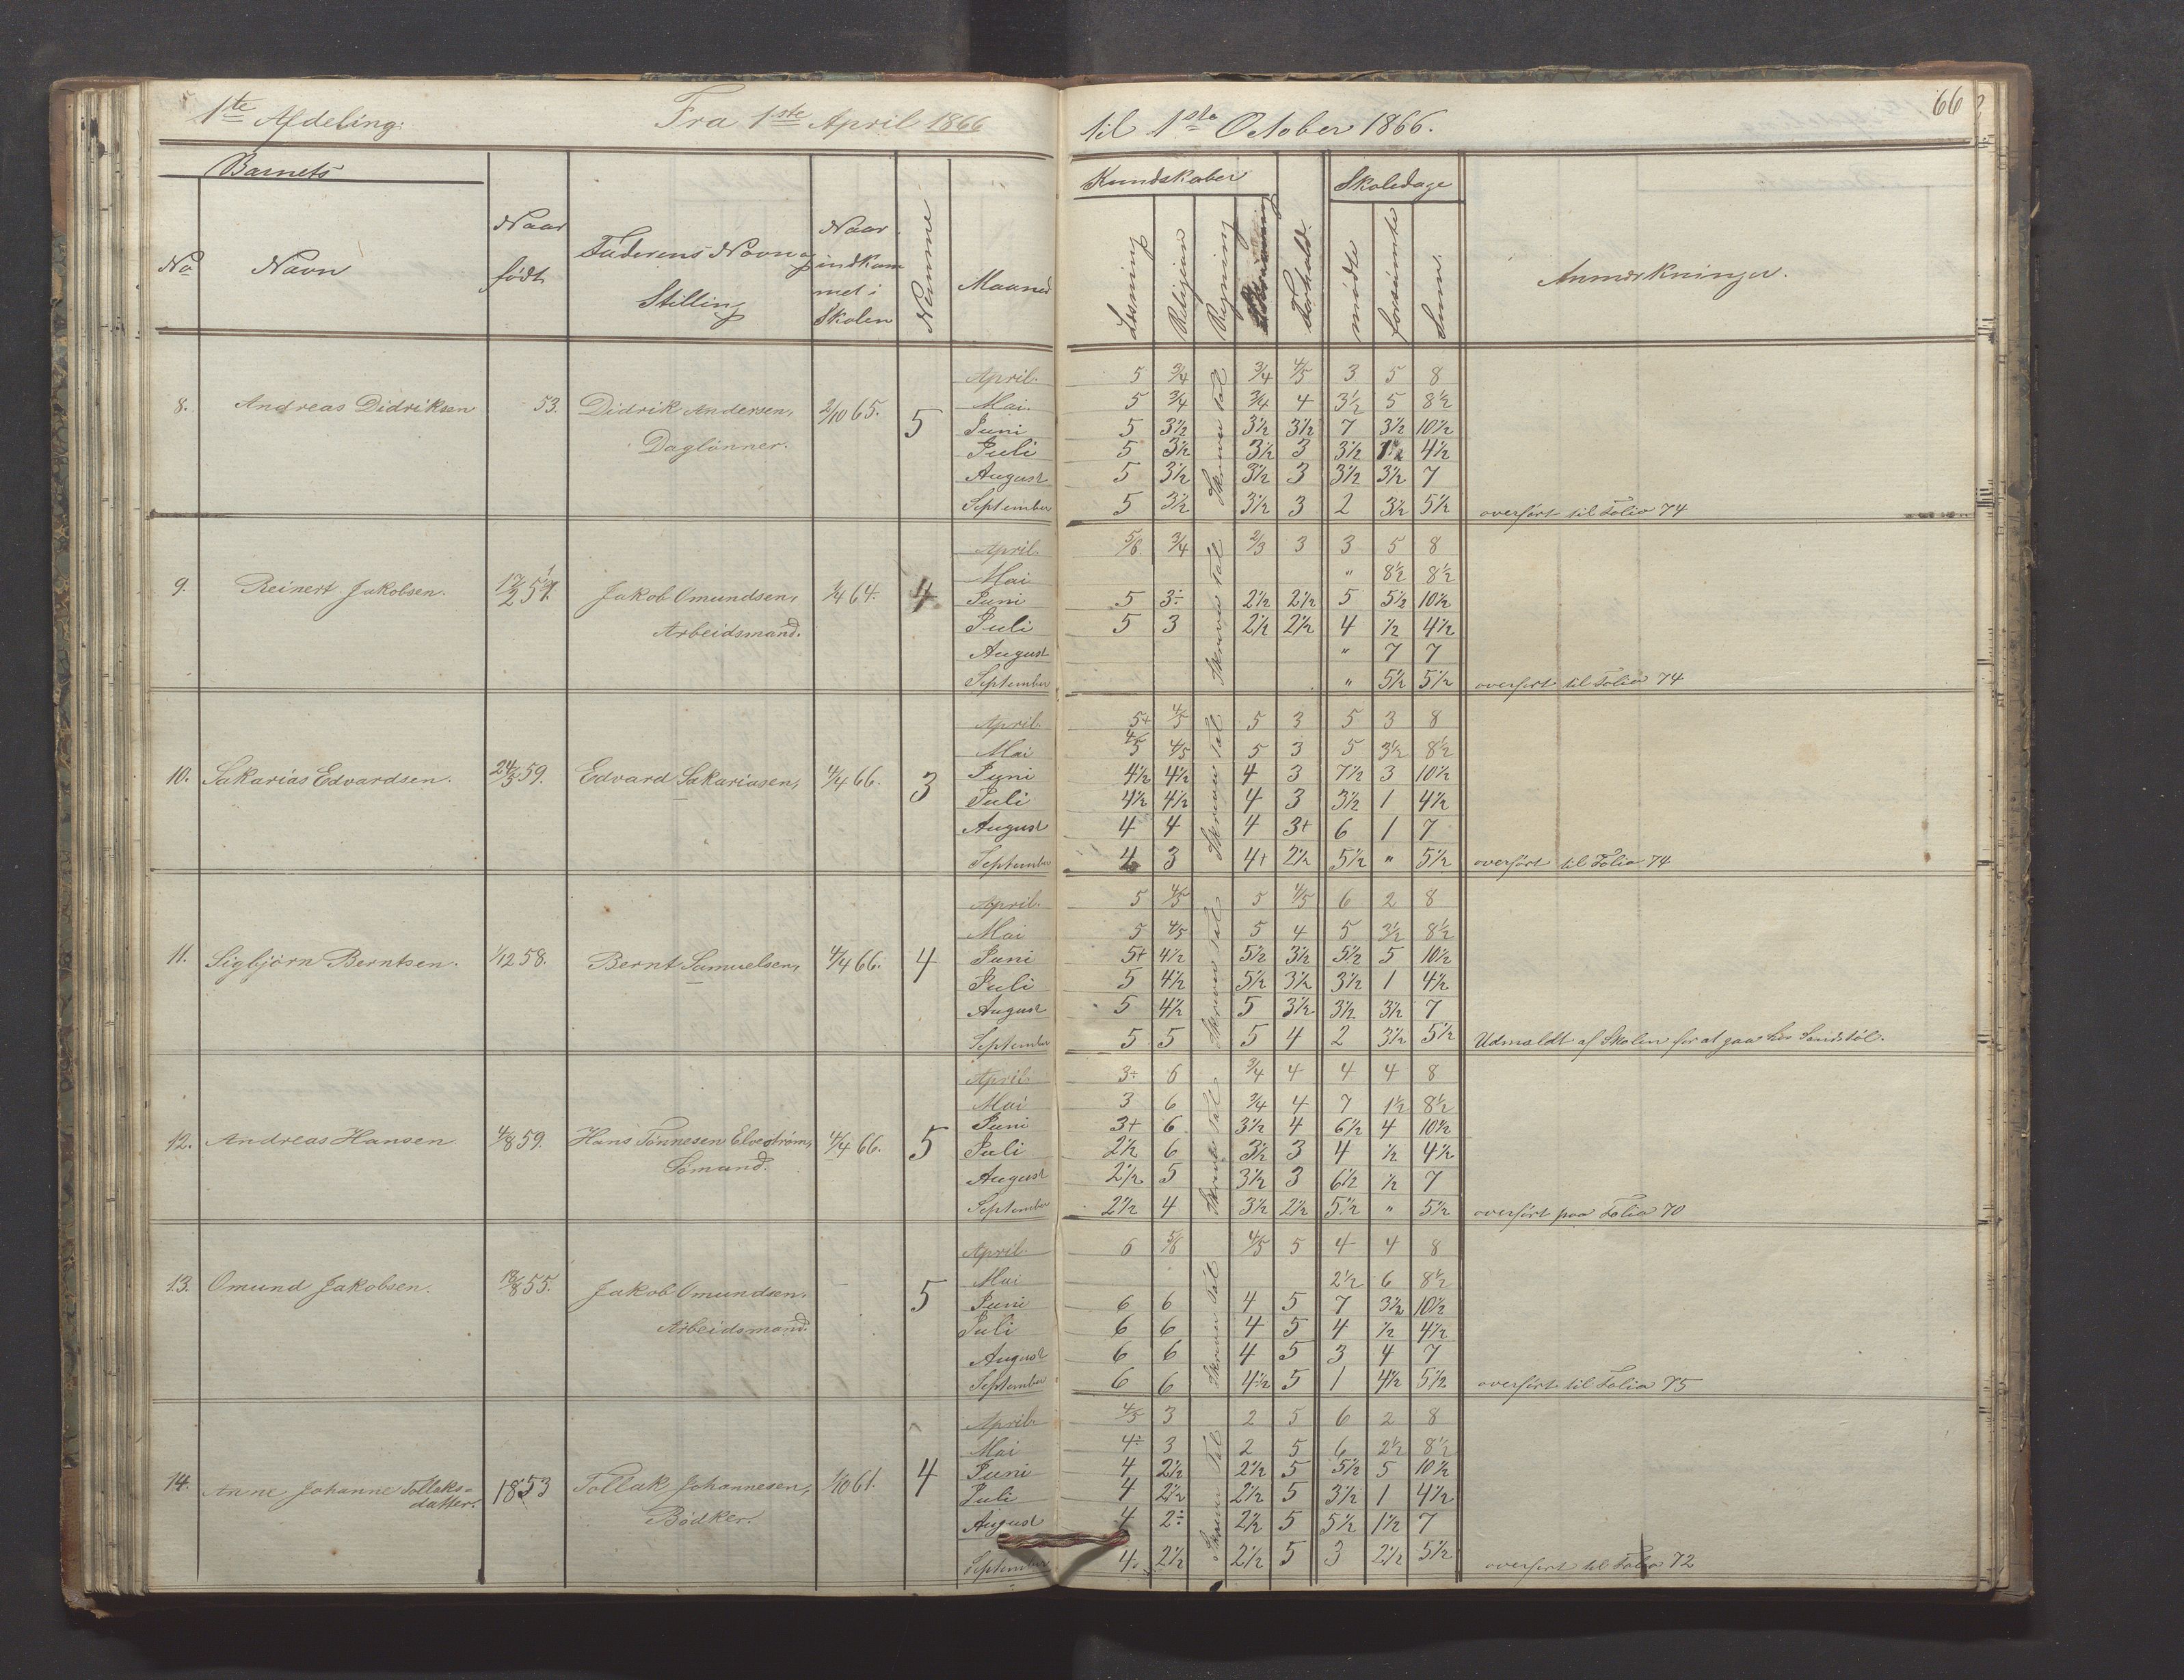 66
1te Afdeling. Fra 1ste April 1866 til 1ste October 1866.
Barnets Kundskaber Skoledage
No Navn Naar født Faderens Navn og Stilling Naar indkommet i Skolen Nemme Maaned Læsning Religion Regning Skrivning Forhold. mødte forsømte Sum. Anmærkninger.
April. 5 3/4 3/4 4/5 3 5 8
8. Andreas Didriksen 53. Didrik Andersen, 2/10 65. 5 Mai. 5 3/4 3/4 4 3½ 5 8½
Daglönner. Juni 5 3½ 3½ 3½ 7 3½ 10½
Juli 5 3½ 3½ 3 3½ 1 4½
August 5 3½ 3½ 3 3½ 3½ 7
September 5 3½ 3½ 3 2 3½ 5½ overført til Folio 74
Skrever Tal
April. 5/6 3/4 2/3 3 3 5 8
Mai " 8½ 8½
9. Reinert Jakobsen. Jakob Omundsen, 1/4 64. 4 Juni 5 3÷ 2½ 2½ 5 5½ 10½
Arbeidsmand. Juli 5 3 2½ 2½ 4 ½ 4½
August " 7 7
September " 5½ 5½ overført til Folio 74
Skrever Tal
April. 5+ 4/5 5 3 5 3 8
Mai 4/5 4/5 5 3 5 3½ 8½
10. Sakarias Edvardsen. 24/3 59. Edvard Sakariasen, 4/4 66. 3 Juni 4½ 4½ 4 3 7½ 3 10½
Juli 4½ 4½ 4 3 3½ 1 4½
August 4 4 4 3+ 6 1 7
September 4 3 4+ 2½ 5½ " 5½ overført til Folio 74
Skrever Tal
April. 5 4/5 5 4/5 6 2 8
Mai 5 4/5 5 4 5 3½ 8½
11. Sigbjörn Berntsen. 1/12 58. Bernt Samuelsen, 4/4 66. 4 Juni 5+ 4½ 5½ 3½ 5½ 5 10½
Juli 5 4½ 5½ 3½ 3½ 1 4½
August 5 4½ 5 3½ 3½ 3½ 7
September 5 5 5 4 2 3½ 5½ Udmeldt af Skolen for at gaa hos Sandstöl.
Skrever Tal
April 3÷ 6 3/4 4 4 4 8
Mai 3 6 3/4 4 7 1½ 8½
12. Andreas Hansen 4/8 59. Hans Tönnesen Elvestrøm, 4/4 66. 5 Juni 3+ 6 3½ 4 6½ 4 10½
Sömand. Juli 2½ 6 3½ 3 4 ½ 4½
August 2½ 5 3½ 3 6½ ½ 7
September 2½ 4 3½ 2½ 5½ " 5½ overført paa Folio 70
Skrever Tal
April. 6 5/6 4/5 5 4 4 8
13. Omund Jakobsen. 18/8 55. Jakob Omundsen. 5 Mai 2½ 6 8½
Arbeidsmand. Juni 6 6 4 5 7 3½ 10½
Juli 6 6 4 5 4 ½ 4½
August 6 6 4 5 3 4 7
September 6 6 4½ 5 1 4½ 5½ overført til Folio 75
Skrever Tal
April 4/5 3 2 5 6 2 8
Mai 4÷ 3 2 5 6 2½ 8½
14. Anne Johanne Tollaks= 1853 Tollak Johannesen, 1/10 61. 4 Juni 4 2½ 2½ 5 5½ 5 10½
datter. Bödker. Juli 4 2½ 2½ 5 3½ 1 4½
August 4 2÷ 2½ 5 5½ 1½ 7
September 4 2½ 2½ 5 3 2½ 5½ overført til Folio 72
Skrever Tal